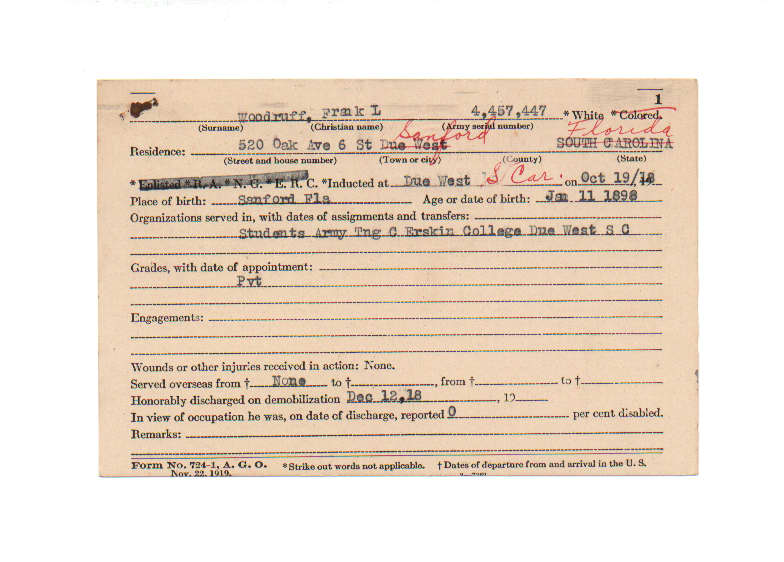 1
Woodruff, Frank L 4,457,447 *White *Colored.
(Surname) (Christian name) (Army serial number)
Sanford Florida
Residence: 520 Oak Ave 6 St Due West SOUTH CAROLINA
(Street and house number) (Town or city) (County) (State)
*Enlisted *R. A. *N. G. *E. R. C. *Inducted at Due West S Car. on Oct 19/18
Place of birth: Sanford Fla Age or date of birth: Jan 11 1898
Organizations served in, with dates of assignments and transfers:
Students Army Tng C Erskin College Due West S C
Grades, with date of appointment:
Pvt
Engagements:
Wounds or other injuries received in action: None.
Served overseas from † None to †, from † to †
Honorably discharged on demobilization Dec 12,18, 19
In view of occupation he was, on date of discharge, reported 0 per cent disabled.
Remarks:
Form No. 724-1, A. G. O. *Strike out words not applicable. † Dates of departure from and arrival in the U. S.
Nov. 22, 1919.